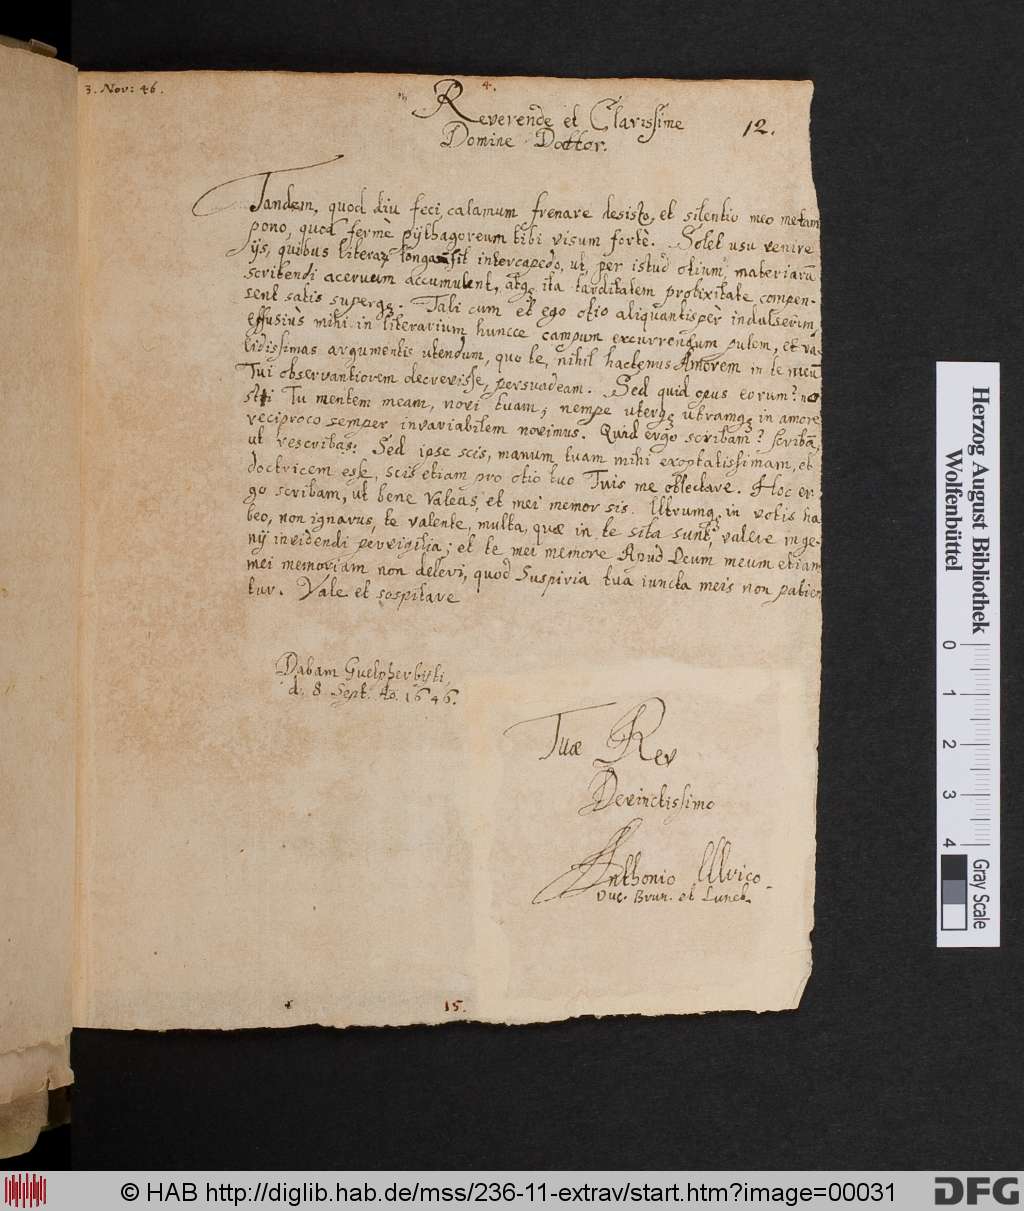 3. Nov: 46.
4.
12.
Reverende et Clarissime
Domine Doctor.
Tandem, quod diu feci, calamum frenare desisto, et silentio meo metam
pono, quod fermè pythagoreum tibi visum fortè. Solet usu venire
ijs, quibus literarum longa sit intercapedo, ut, per istud otium, materiarū
scribendi acervum accumulent, atqꝫ ita tarditatem prolixitate compen-
sent satis superqꝫ. Tali cum et ego otio aliquantispèr indulserim,
effusiùs mihi in literarium huncce campum excurrendum putem, et va-
lidissimas argumentis utendum, quo te, nihil hactenus Amorem in te meū
Tui observantiorem decrevisse, persuadeam. Sed quid opus eorum? no
sti Tu mentem meam, novi tuam; nempe uterqꝫ utramqꝫ in amore
reciproco semper invariabilem novimus. Quid ergo scribam? scribā,
ut rescribas: Sed ipse scis, manum tuam mihi exoptatissimam, et
doctricem esse, scis etiam pro otio tuo Tuis me oblectare. Hoc er-
go scribam, ut bene valeas, et mei memor sis. Utrumqꝫ in votis ha
beo, non ignarus, te valente, multa, quæ in te sita sunt, valere inge-
nij invidendi pervigilia; et te mei memore Apud Deum meum etiam
mei memoriam non deleri, quod Suspiria tua iuncta meis non patien
tur. Vale et sospitare
Dabam Guelpherbijti,
d. 8. Sept. Ao. 1646.
Tuæ Rev
Devinctissimo
Anthonio Ulrico
Duc. Brun. et Luneb.
15.
Herzog August Bibliothek
Wolfenbüttel
0 1 2 3 4
Gray Scale
© HAB http://diglib.hab.de/mss/236-11-extrav/start.htm?image=00031
DFG